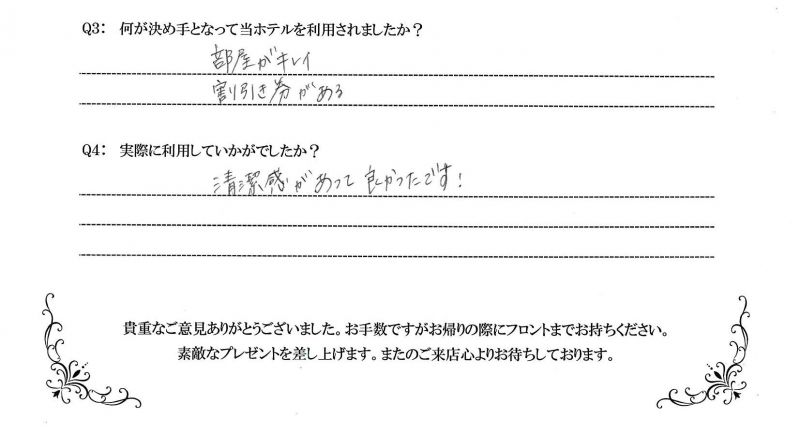 Q3: 何が決め手となって当ホテルを利用されましたか?
部屋がキレイ
割引き券がある
Q4: 実際に利用していかがでしたか?
清潔感があって良かったです!
貴重なご意見ありがとうございました。お手数ですがお帰りの際にフロントまでお持ちください。
素敵なプレゼントを差し上げます。またのご来店心よりお待ちしております。